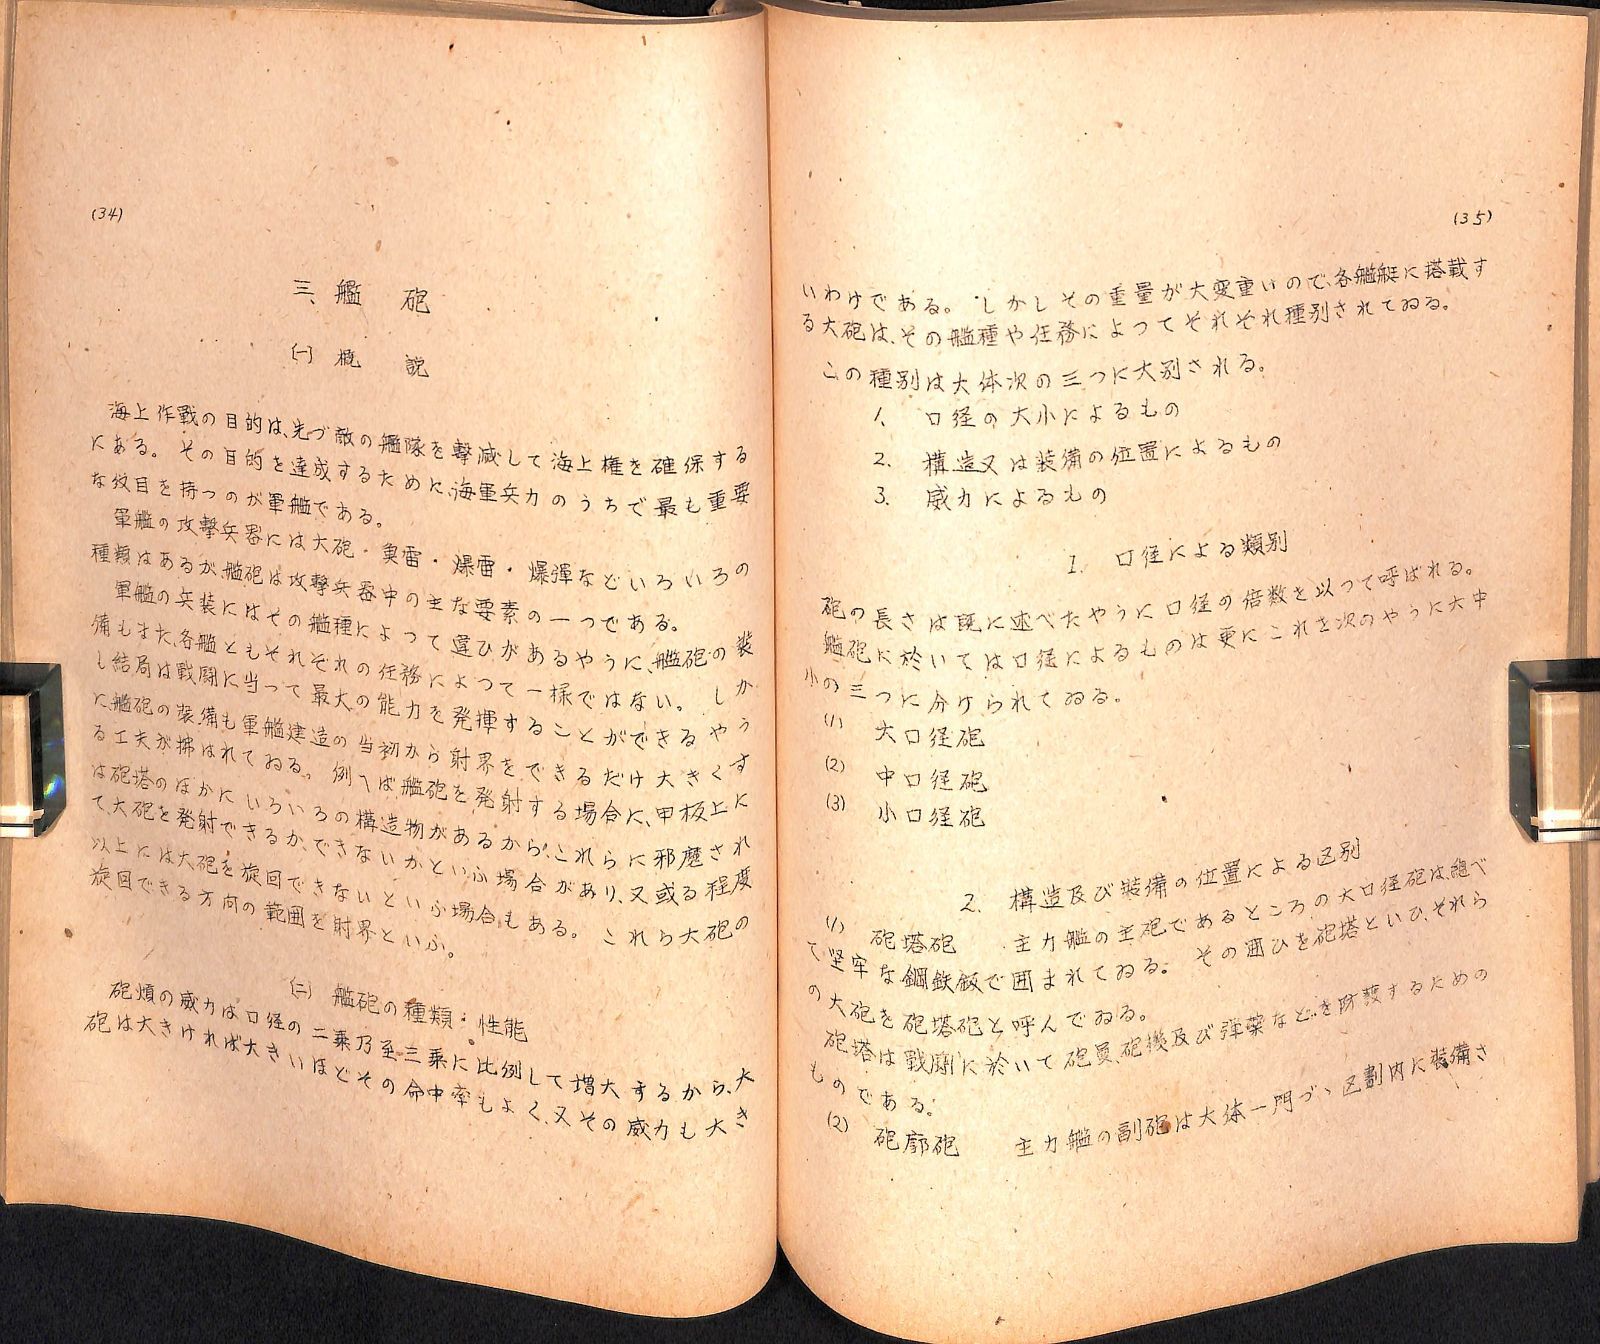 (34)
三、艦　砲
(一) 概　説
海上作戰の目的は、先づ敵の艦隊を撃滅して海上権を確保する
にある。その目的を達成するために、海軍兵力のうちで最も重要
な役目を持つのが軍艦である。
軍艦の攻撃兵器には大砲・魚雷・爆雷・爆弾などいろいろの
種類はあるが、艦砲は攻撃兵器中の主な要素の一つである。
軍艦の兵装にはその艦種によつて違ひがあるやうに、艦砲の装
備もまた、各艦ともそれぞれの任務によつて一様ではない。しか
し結局は戦闘に当って最大の能力を発揮することができるやう
に、艦砲の装備も軍艦建造の当初から射界をできるだけ大きくす
る工夫が拂はれてゐる。例へば艦砲を発射する場合に、甲板上に
は砲塔のほかにいろいろの構造物があるから、これらに邪魔され
て、大砲を発射できるか、できないかといふ場合があり、又或る程度
以上には大砲を旋回できないといふ場合もある。これら大砲の
旋回できる方向の範囲を射界といふ。
(二) 艦砲の種類：性能
砲熕の威力は口径の二乗乃至三乗に比例して増大するから、大
砲は大きければ大きいほどその命中率もよく、又その威力も大き
(35)
いわけである。しかしその重量が大変重いので、各艦艇に搭載す
る大砲は、その艦種や任務によつてそれぞれ種別されてゐる。
この種別は大体次の三つに大別される。
1. 口径の大小によるもの
2. 構造又は装備の位置によるもの
3. 威力によるもの
1. 口径による類別
砲の長さは既に述べたやうに口径の倍数を以つて呼ばれる。
艦砲に於いては口径によるものは更にこれを次のやうに大中
小の三つに分けられてゐる。
(1) 大口径砲
(2) 中口径砲
(3) 小口径砲
2. 構造及び装備の位置による区別
(1) 砲塔砲　主力艦の主砲であるところの大口径砲は、総べ
て堅牢な鋼鉄鈑で囲まれてゐる。その囲ひを砲塔といひ、それら
の大砲を砲塔砲と呼んでゐる。
砲塔は戰闘に於いて砲員、砲機及び弾薬などを防護するための
ものである。
(2) 砲廓砲　主力艦の副砲は大体一門づゝ区劃内に装備さ